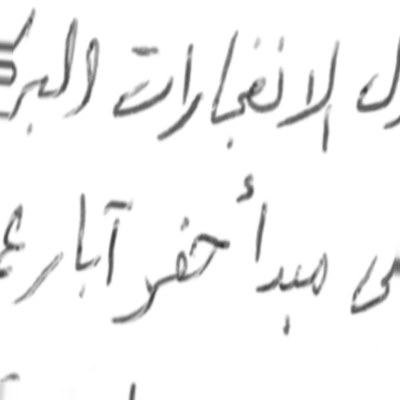 الانفجارات البر
مبدأ حفر آبار